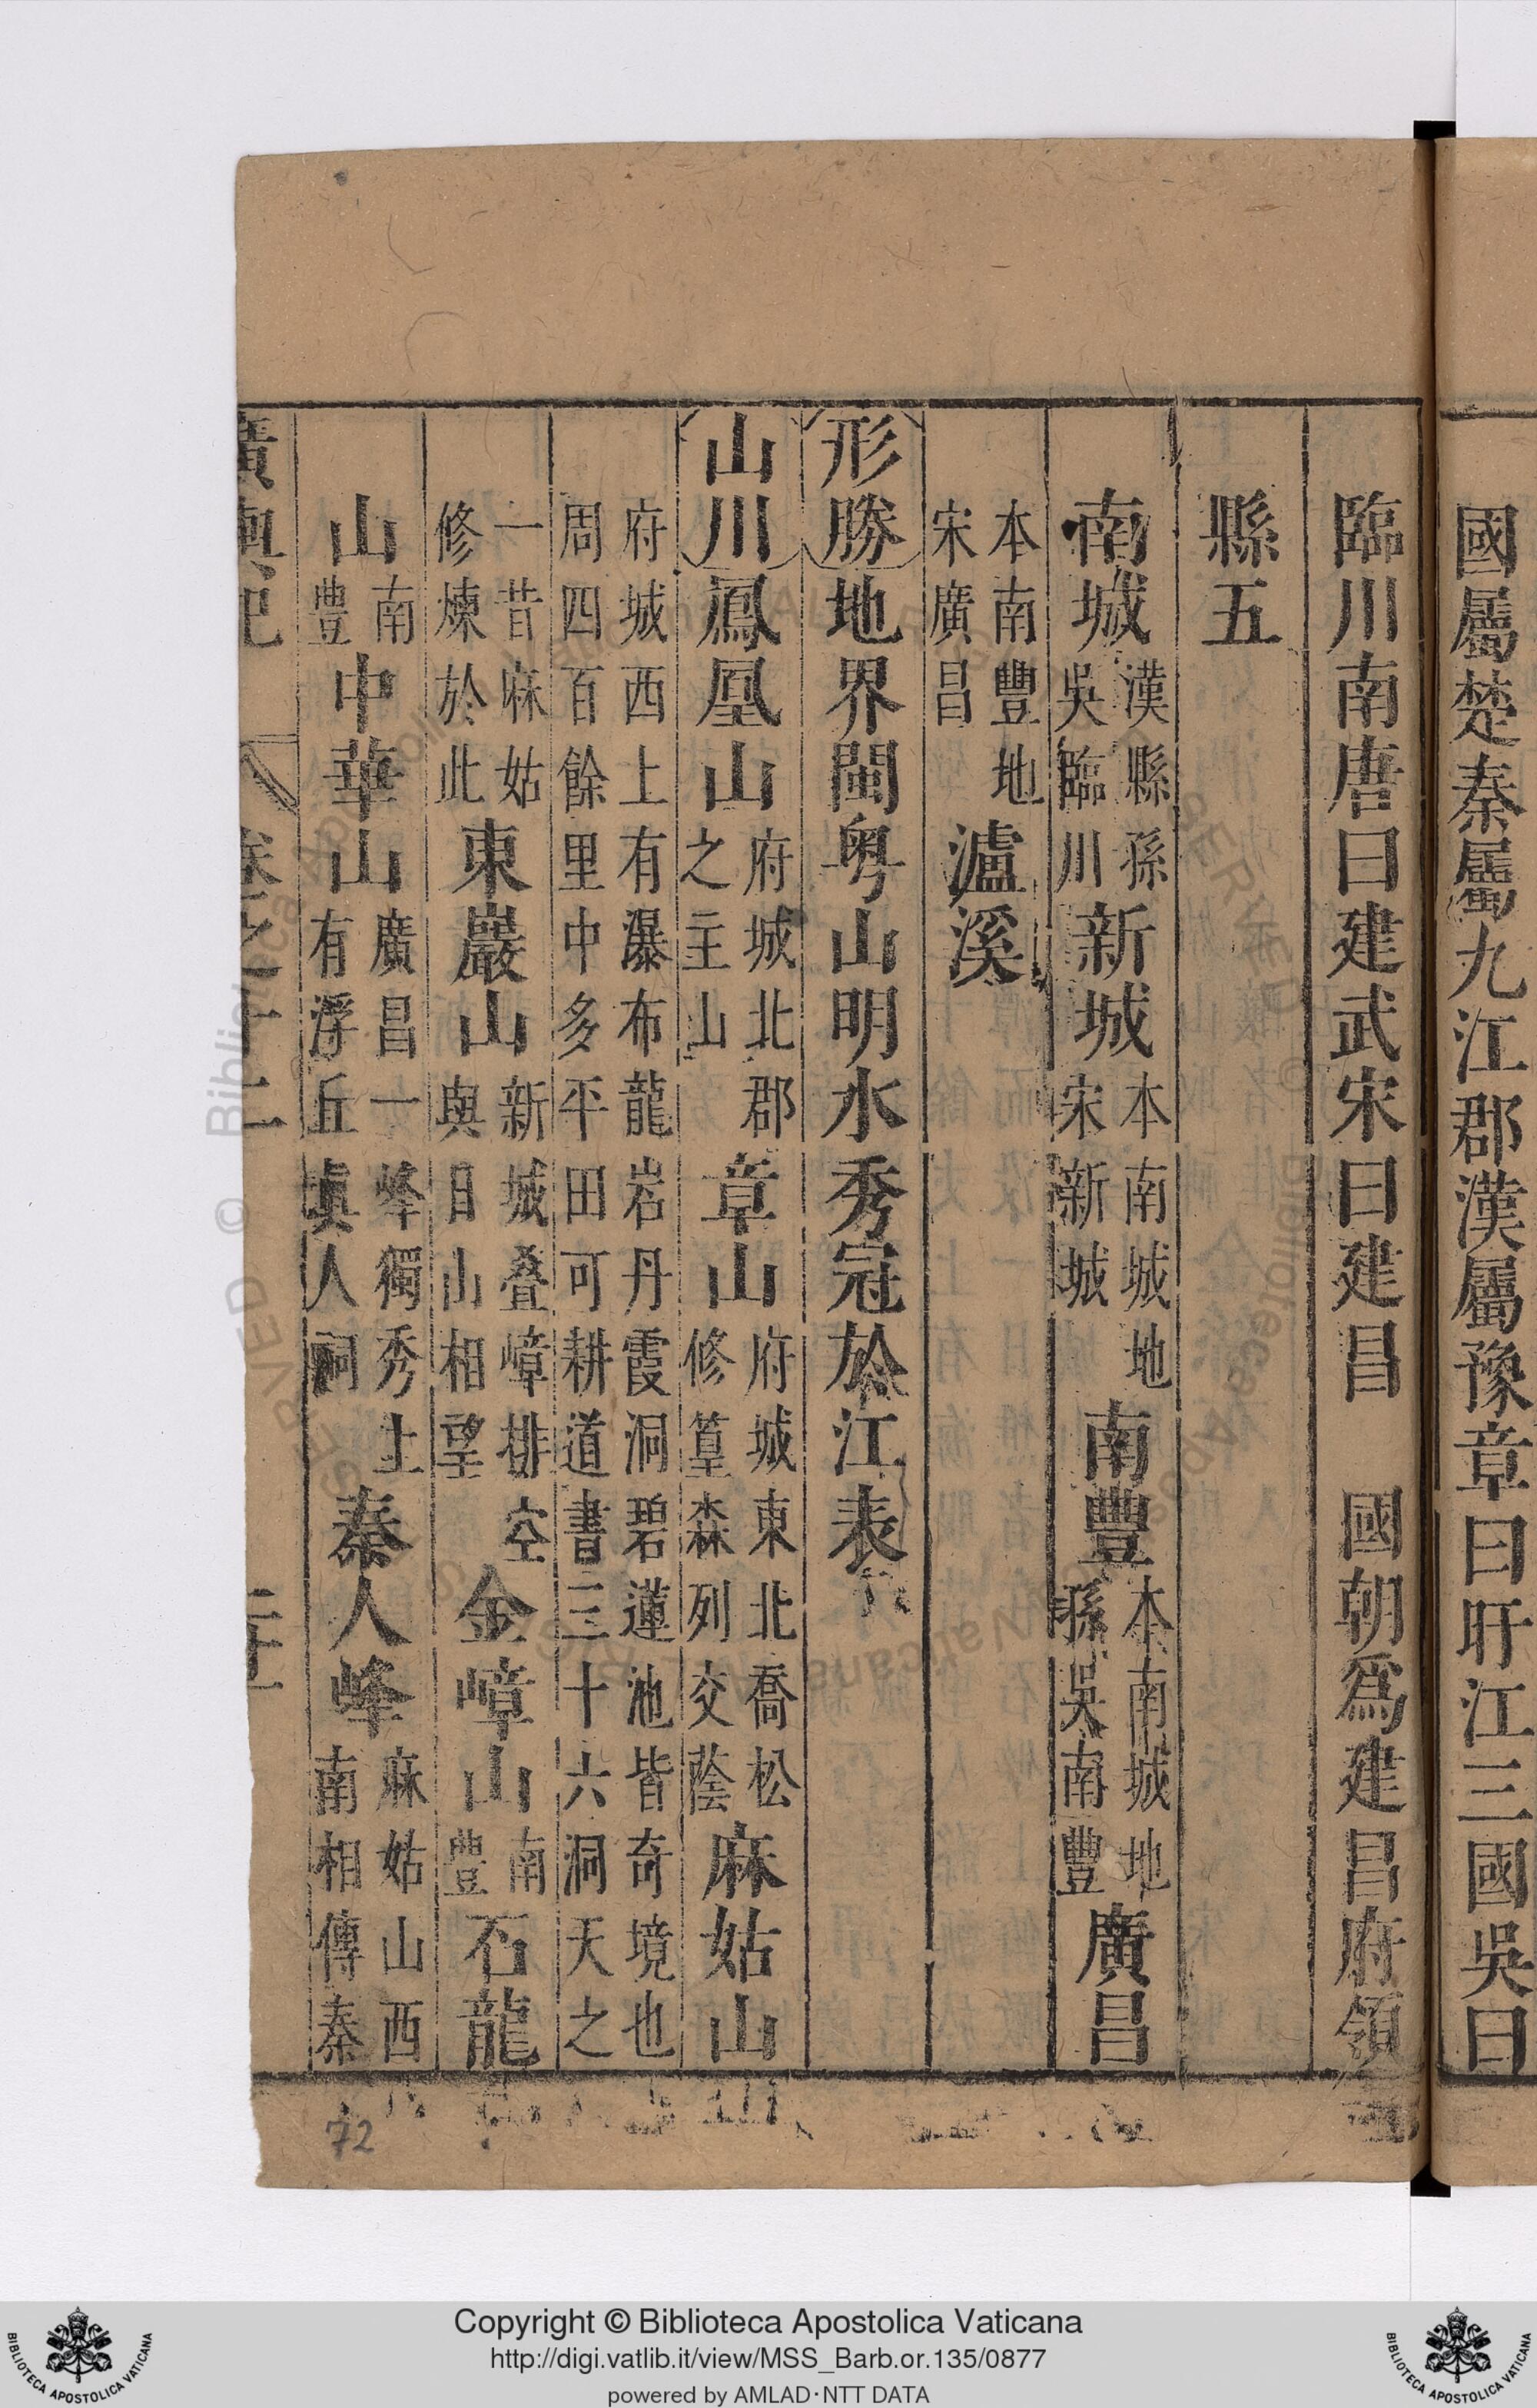 國屬楚秦屬九江郡漢屬豫章曰盱江三國吳曰
臨川南唐曰建武宋曰建昌 國朝爲建昌府領
縣五
南城漢縣孫吳臨川新城本南城地宋新城南豐本南城地孫吳南豐廣昌
本南豐地宋廣昌瀘溪
形勝地界閩粤山明水秀冠於江表
山川鳳凰山府城北郡之主山章山府城東北喬松修篁森列交蔭麻姑山
府城西上有瀑布龍岩丹霞洞碧蓮池皆奇境也周四百餘里中多平田可耕道書三十六洞天之
一昔麻姑修煉於此東巖山新城叠嶂排空與日山相望金嶂山南豐石龍
山南豐中華山廣昌一峰獨秀上有浮丘真人祠秦人峰麻姑山西南相傳秦
廣輿記 卷之十二
72
Copyright © Biblioteca Apostolica Vaticana
http://digi.vatlib.it/view/MSS_Barb.or.135/0877
powered by AMLAD·NTT DATA
BIBLIOTECA APOSTOLICA VATICANA
BIBLIOTECA APOSTOLICA VATICANA